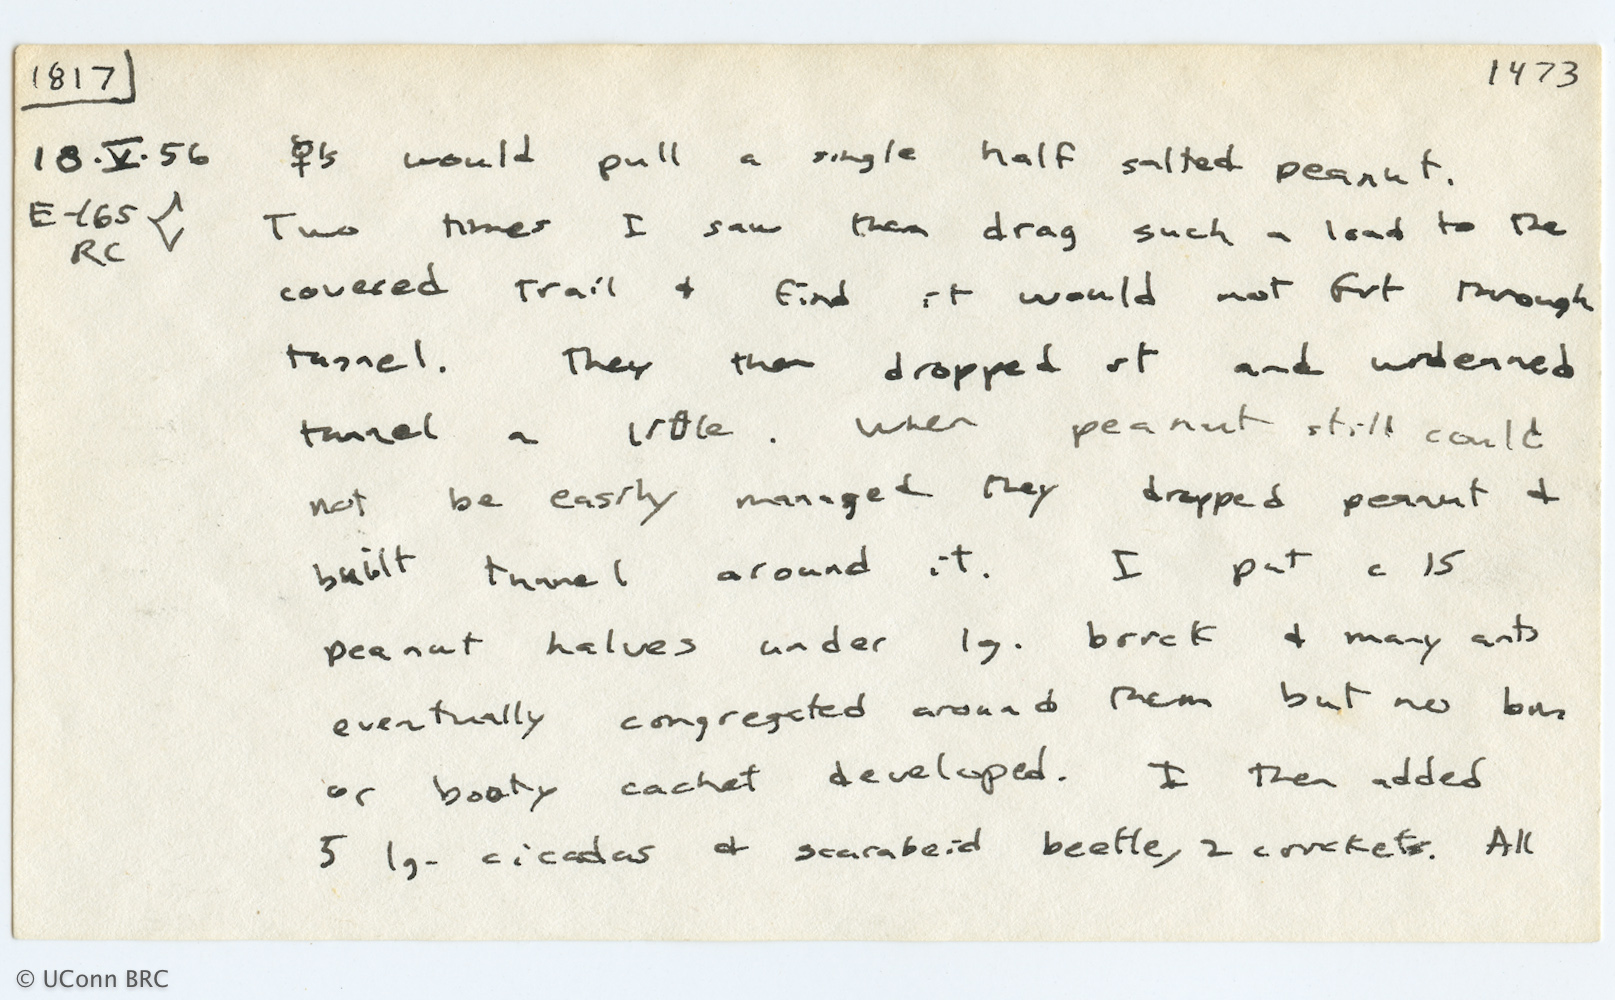 1817 1473
18.V.56 ☿'s would pull a single half salted peanut.
E-165 Two times I saw them drag such a load to the
RC
covered trail & find it would not fit through
tunnel. They then dropped it and widenned
tunnel a little. When peanut still could
not be easily managed they dropped peanut &
built tunnel around it. I put c 15
peanut halves under lg. brick & many ants
eventually congregated around them but no biv
or booty cachet developed. I then added
5 lg. cicadas & scarabeid beetle, 2 crickets. All
© UConn BRC